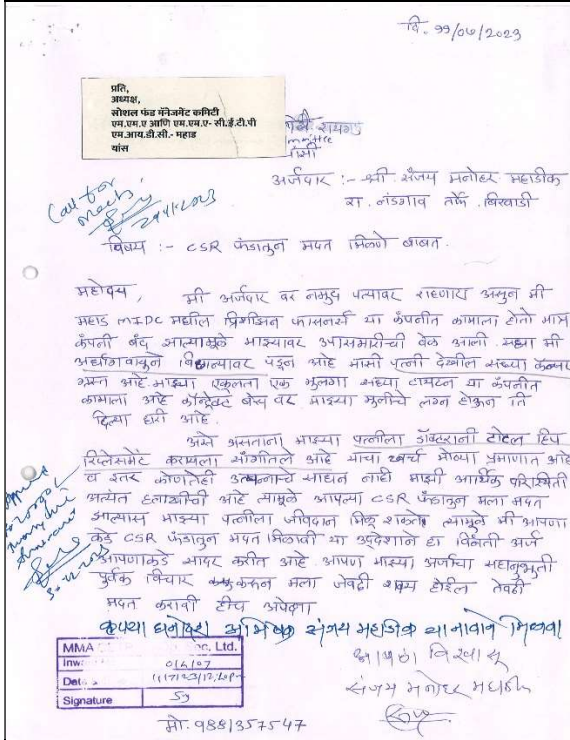 दि. ११/०७/२०२३
प्रति,
अध्यक्ष,
सोशल फंड मॅनेजमेंट कमिटी
एम.एम.ए आणि एम.एम.ए- सी.ई.टी.पी
एम.आय.डी.सी.- महाड
यांस
रायगड
अर्जदार :- श्री. संजय मनोहर महाडीक
रा. नडगाव तर्फे बिरवाडी
Call for
विषय :- CSR फंडातुन मदत मिळणे बाबत.
महोदय,
मी अर्जदार वर नमुद पत्यावर राहणारा असुन मी
महाड MIDC मधील फासनर्स या कंपनीत कामाला होतो मात्र
कंपनी बंद झाल्यामुळे माझ्यावर उपासमारीची वेळ आली. सध्या मी
अर्धांगवायुने पडुन आहे माझी पत्नी देखील सध्या कॅन्सर
ग्रस्त आहे. माझ्या एकुलता एक मुलगा सध्या या कंपनीत
कामाला आहे कॉन्ट्रॅक्ट बेस वर माझ्या मुलीचे लग्न होऊन ति
दिल्या घरी आहे.
असे असताना माझ्या पत्नीला डॉक्टरांनी टोटल हिप
रिप्लेसमेंट करायला सांगीतले आहे याचा खर्च मोठ्या प्रमाणात आहे
व इतर कोणतेही उत्पन्नाचे साधन नाही माझी आर्थिक परिस्थिती
अत्यंत हलाखीची आहे त्यामुळे आपल्या CSR फंडातुन मला मदत
झाल्यास माझ्या पत्नीला जीवदान मिळु शकते त्यामुळे मी आपणा
कडे CSR फंडातुन मदत मिळावी या उद्देशाने हा विनंती अर्ज
आपणाकडे सादर करीत आहे. आपण माझ्या अर्जाचा सहानुभुती
पुर्वक विचार करून मला जेवढी शक्य होईल तेवढी
मदत करावी हीच अपेक्षा
कृपया धनादेश अभिषेक संजय महाडिक या नावाने मिळावा
MMA Soc, Ltd.
Signature
आपला विश्वासू
संजय मनोहर महाडीक
मो. 9881357547